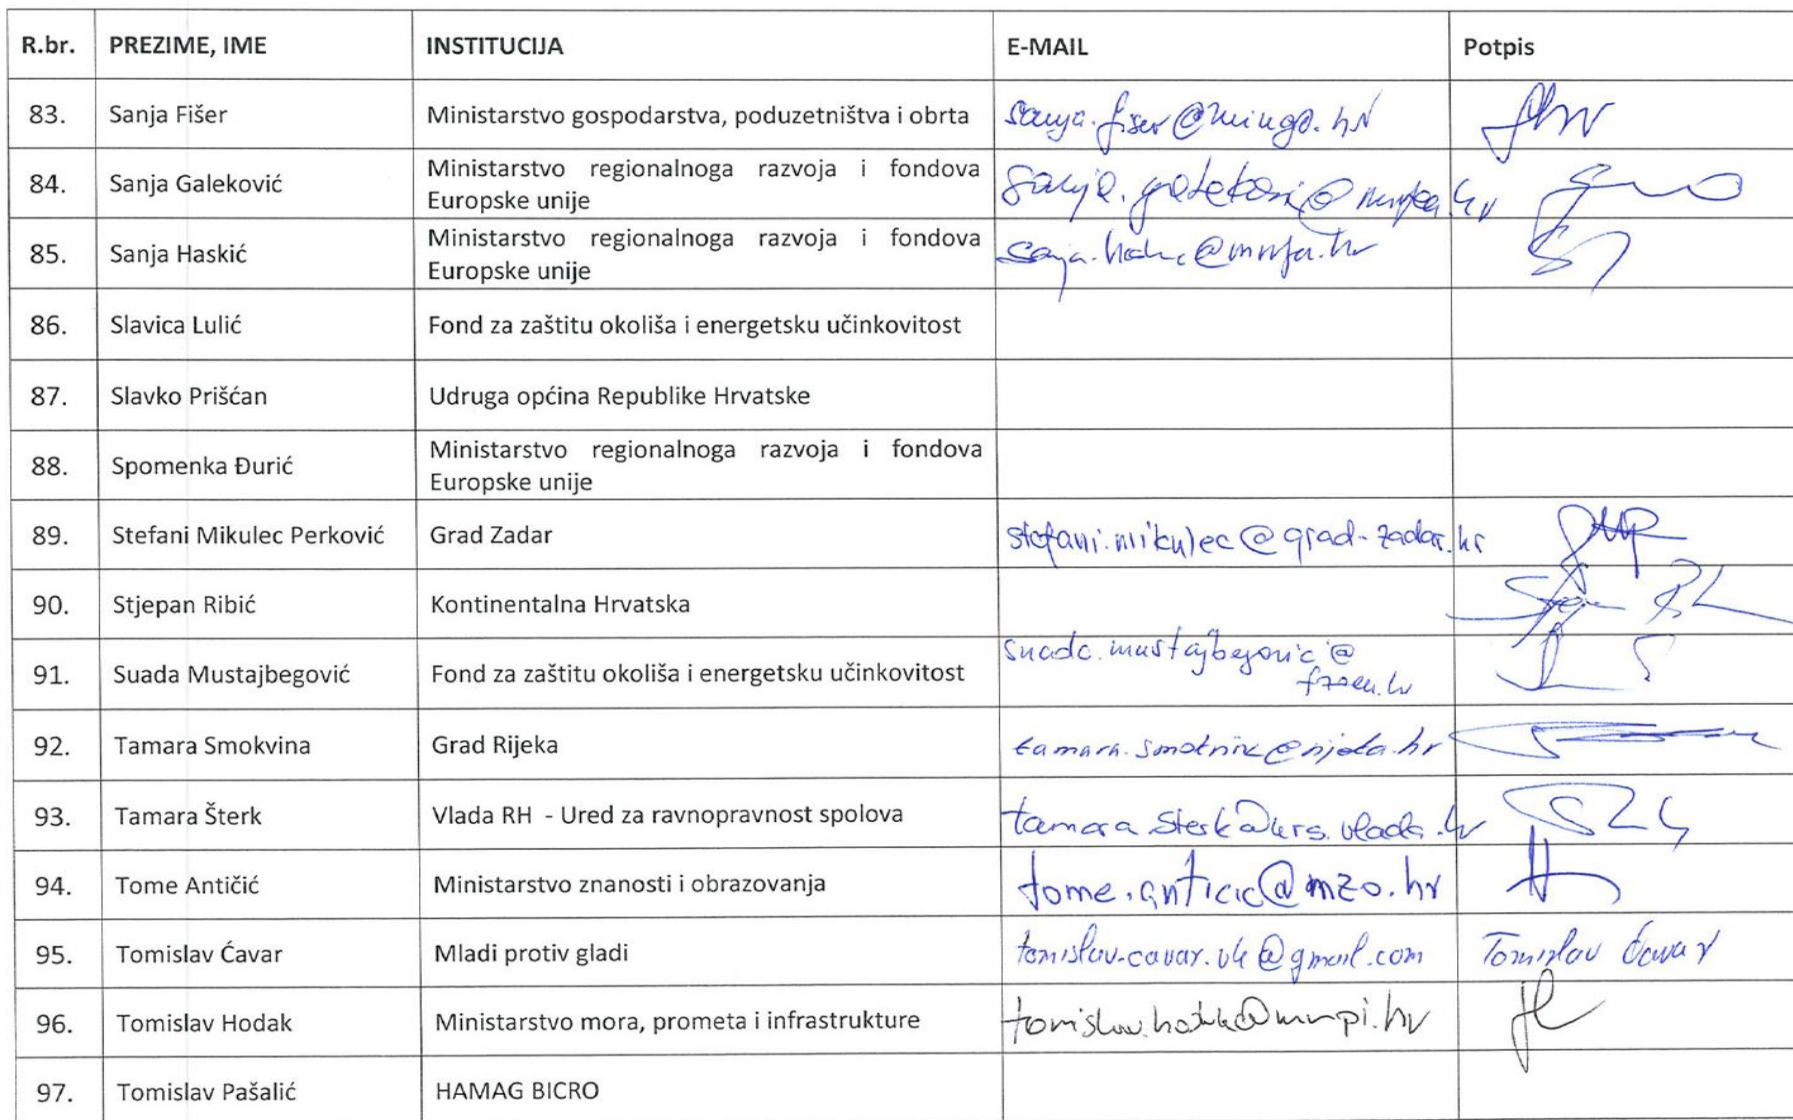 R.br. PREZIME, IME INSTITUCIJA E-MAIL Potpis
83. Sanja Fišer Ministarstvo gospodarstva, poduzetništva i obrta sanja.fiser@mingo.hr
84. Sanja Galeković Ministarstvo regionalnoga razvoja i fondova
Europske unije
85. Sanja Haskić Ministarstvo regionalnoga razvoja i fondova
Europske unije
86. Slavica Lulić Fond za zaštitu okoliša i energetsku učinkovitost
87. Slavko Prišćan Udruga općina Republike Hrvatske
88. Spomenka Đurić Ministarstvo regionalnoga razvoja i fondova
Europske unije
89. Stefani Mikulec Perković Grad Zadar stefani.mikulec@grad-zadar.hr
90. Stjepan Ribić Kontinentalna Hrvatska
91. Suada Mustajbegović Fond za zaštitu okoliša i energetsku učinkovitost suada.mustajbegovic@
fzoeu.hr
92. Tamara Smokvina Grad Rijeka
93. Tamara Šterk Vlada RH - Ured za ravnopravnost spolova tamara.sterk@urs.vlada.hr
94. Tome Antičić Ministarstvo znanosti i obrazovanja tome.anticic@mzo.hr
95. Tomislav Ćavar Mladi protiv gladi tomislav.cavar.vk@gmail.com Tomislav Ćavar
96. Tomislav Hodak Ministarstvo mora, prometa i infrastrukture
97. Tomislav Pašalić HAMAG BICRO